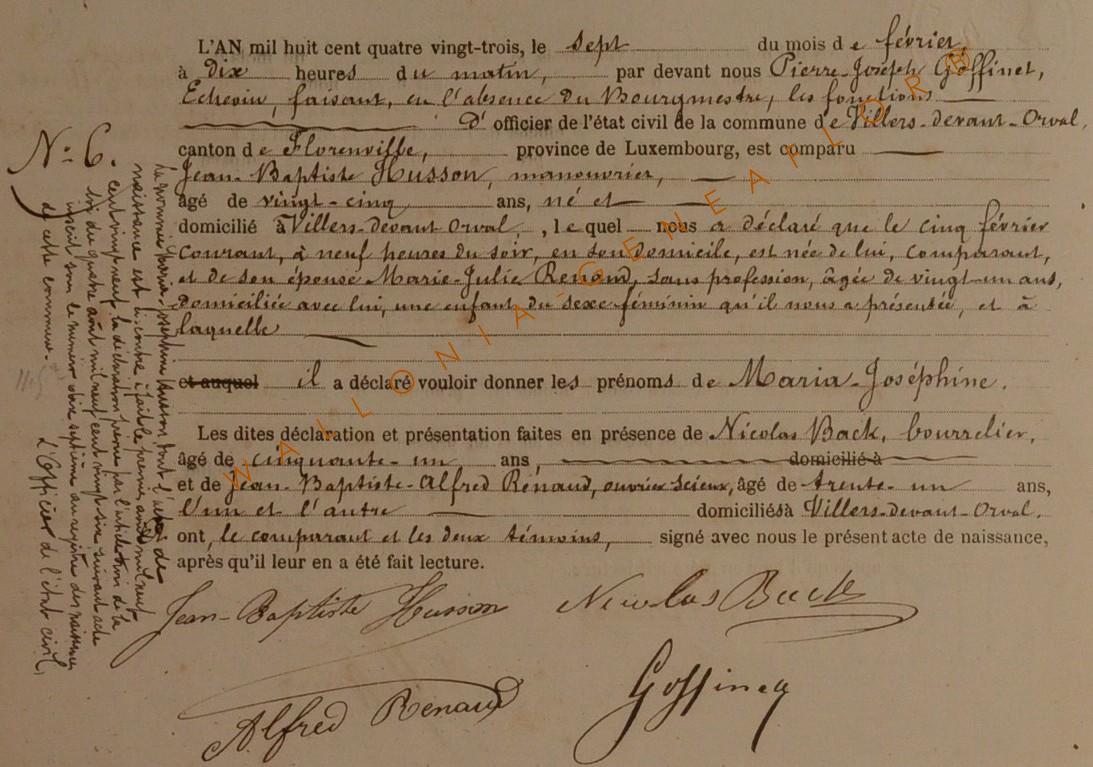 L'AN mil huit cent quatre vingt-trois, le sept du mois de février,
à dix heures du matin, par devant nous Pierre-Joseph Goffinet,
Echevin, faisant, en l'absence du Bourgmestre, les fonctions
D' officier de l'état civil de la commune de Villers-devant-Orval,
canton de Florenville, province de Luxembourg, est comparu
Jean-Baptiste Husson, manouvrier,
âgé de vingt-cinq ans, né et
domicilié à Villers-devant-Orval, lequel nous a déclaré que le cinq février
courant, à neuf heures du soir, en son domicile, est née de lui, comparant,
et de son épouse Marie-Julie Renaud, sans profession, âgée de vingt-un ans,
domiciliée avec lui, une enfant du sexe féminin qu'il nous a présentée, et à
laquelle
et auquel il a déclaré vouloir donner les prénoms de Maria-Joséphine.
Les dites déclaration et présentation faites en présence de Nicolas Back, bourrelier,
âgé de cinquante-un ans, domicilié à
et de Jean-Baptiste-Alfred Renaud, ouvrier scieur, âgé de trente-un ans,
l'un et l'autre domiciliés à Villers-devant-Orval.
ont, le comparant et les deux témoins, signé avec nous le présent acte de naissance,
après qu'il leur en a été fait lecture.
Jean-Baptiste Husson Nicolas Back
Alfred Renaud Goffinet
N° 6.
La nommée Maria-Joséphine Husson dont l'acte de
naissance est ci-contre a fait le premier avril mil neuf
cent vingt neuf la déclaration prévue par l'article de la
loi du quatre août mil neuf cent vingt six suivant acte
inscrit sous le numéro septième au registre des naissances
de cette commune.
L'Officier de l'état civil,
WALLONIA-GENEALOR®